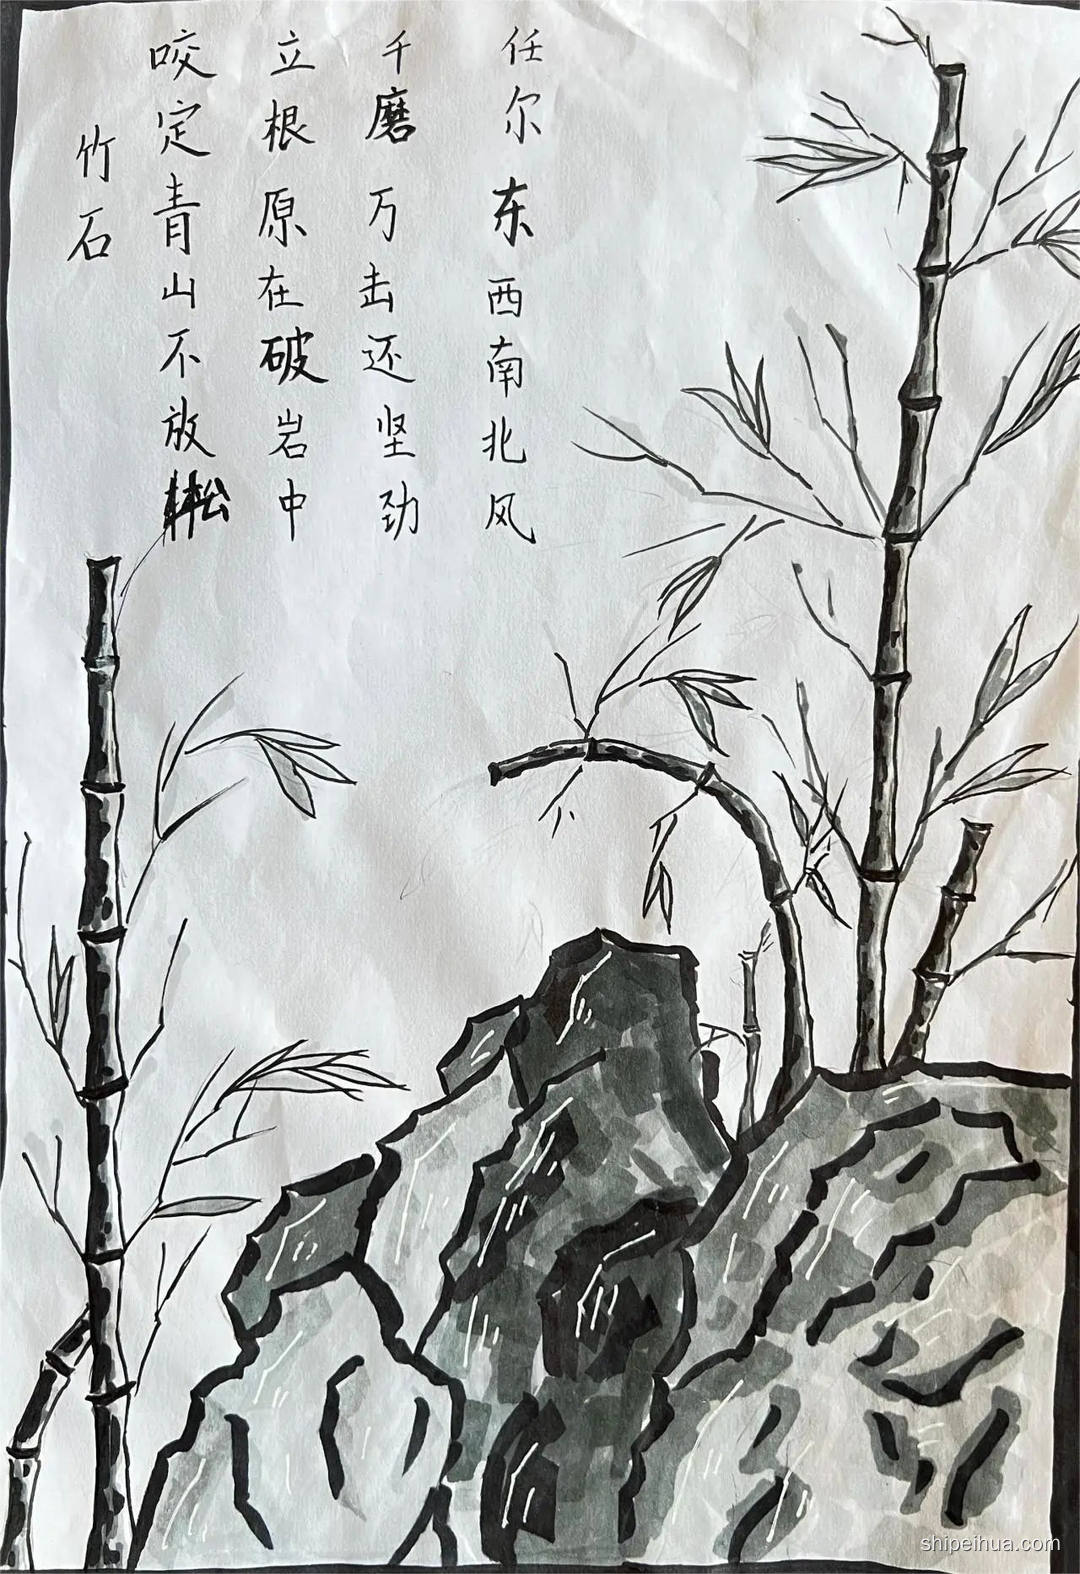 竹石
咬定青山不放松
立根原在破岩中
千磨万击还坚劲
任尔东西南北风
shipeihua.com